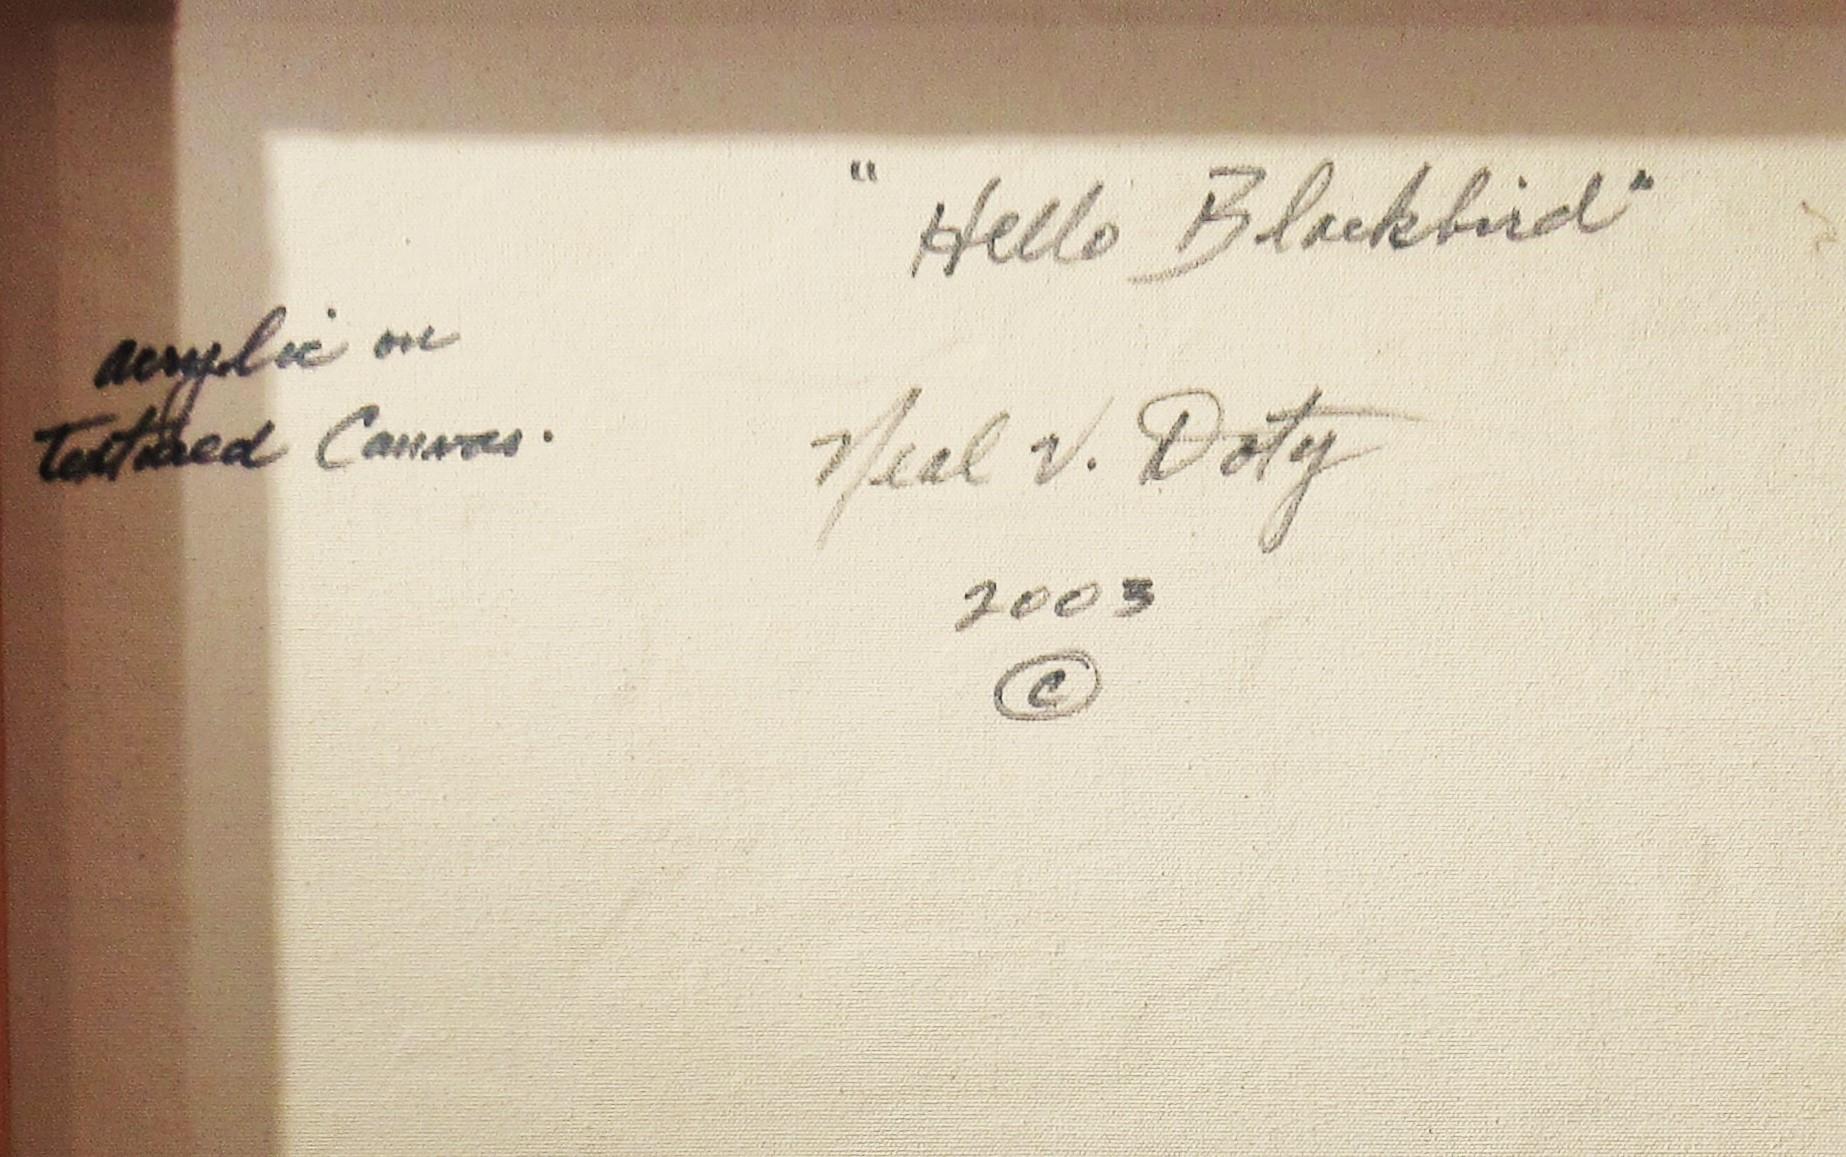 "Hello Blackbird"
acrylic on
Textured Canvas.
Neal V. Doty
2003
©